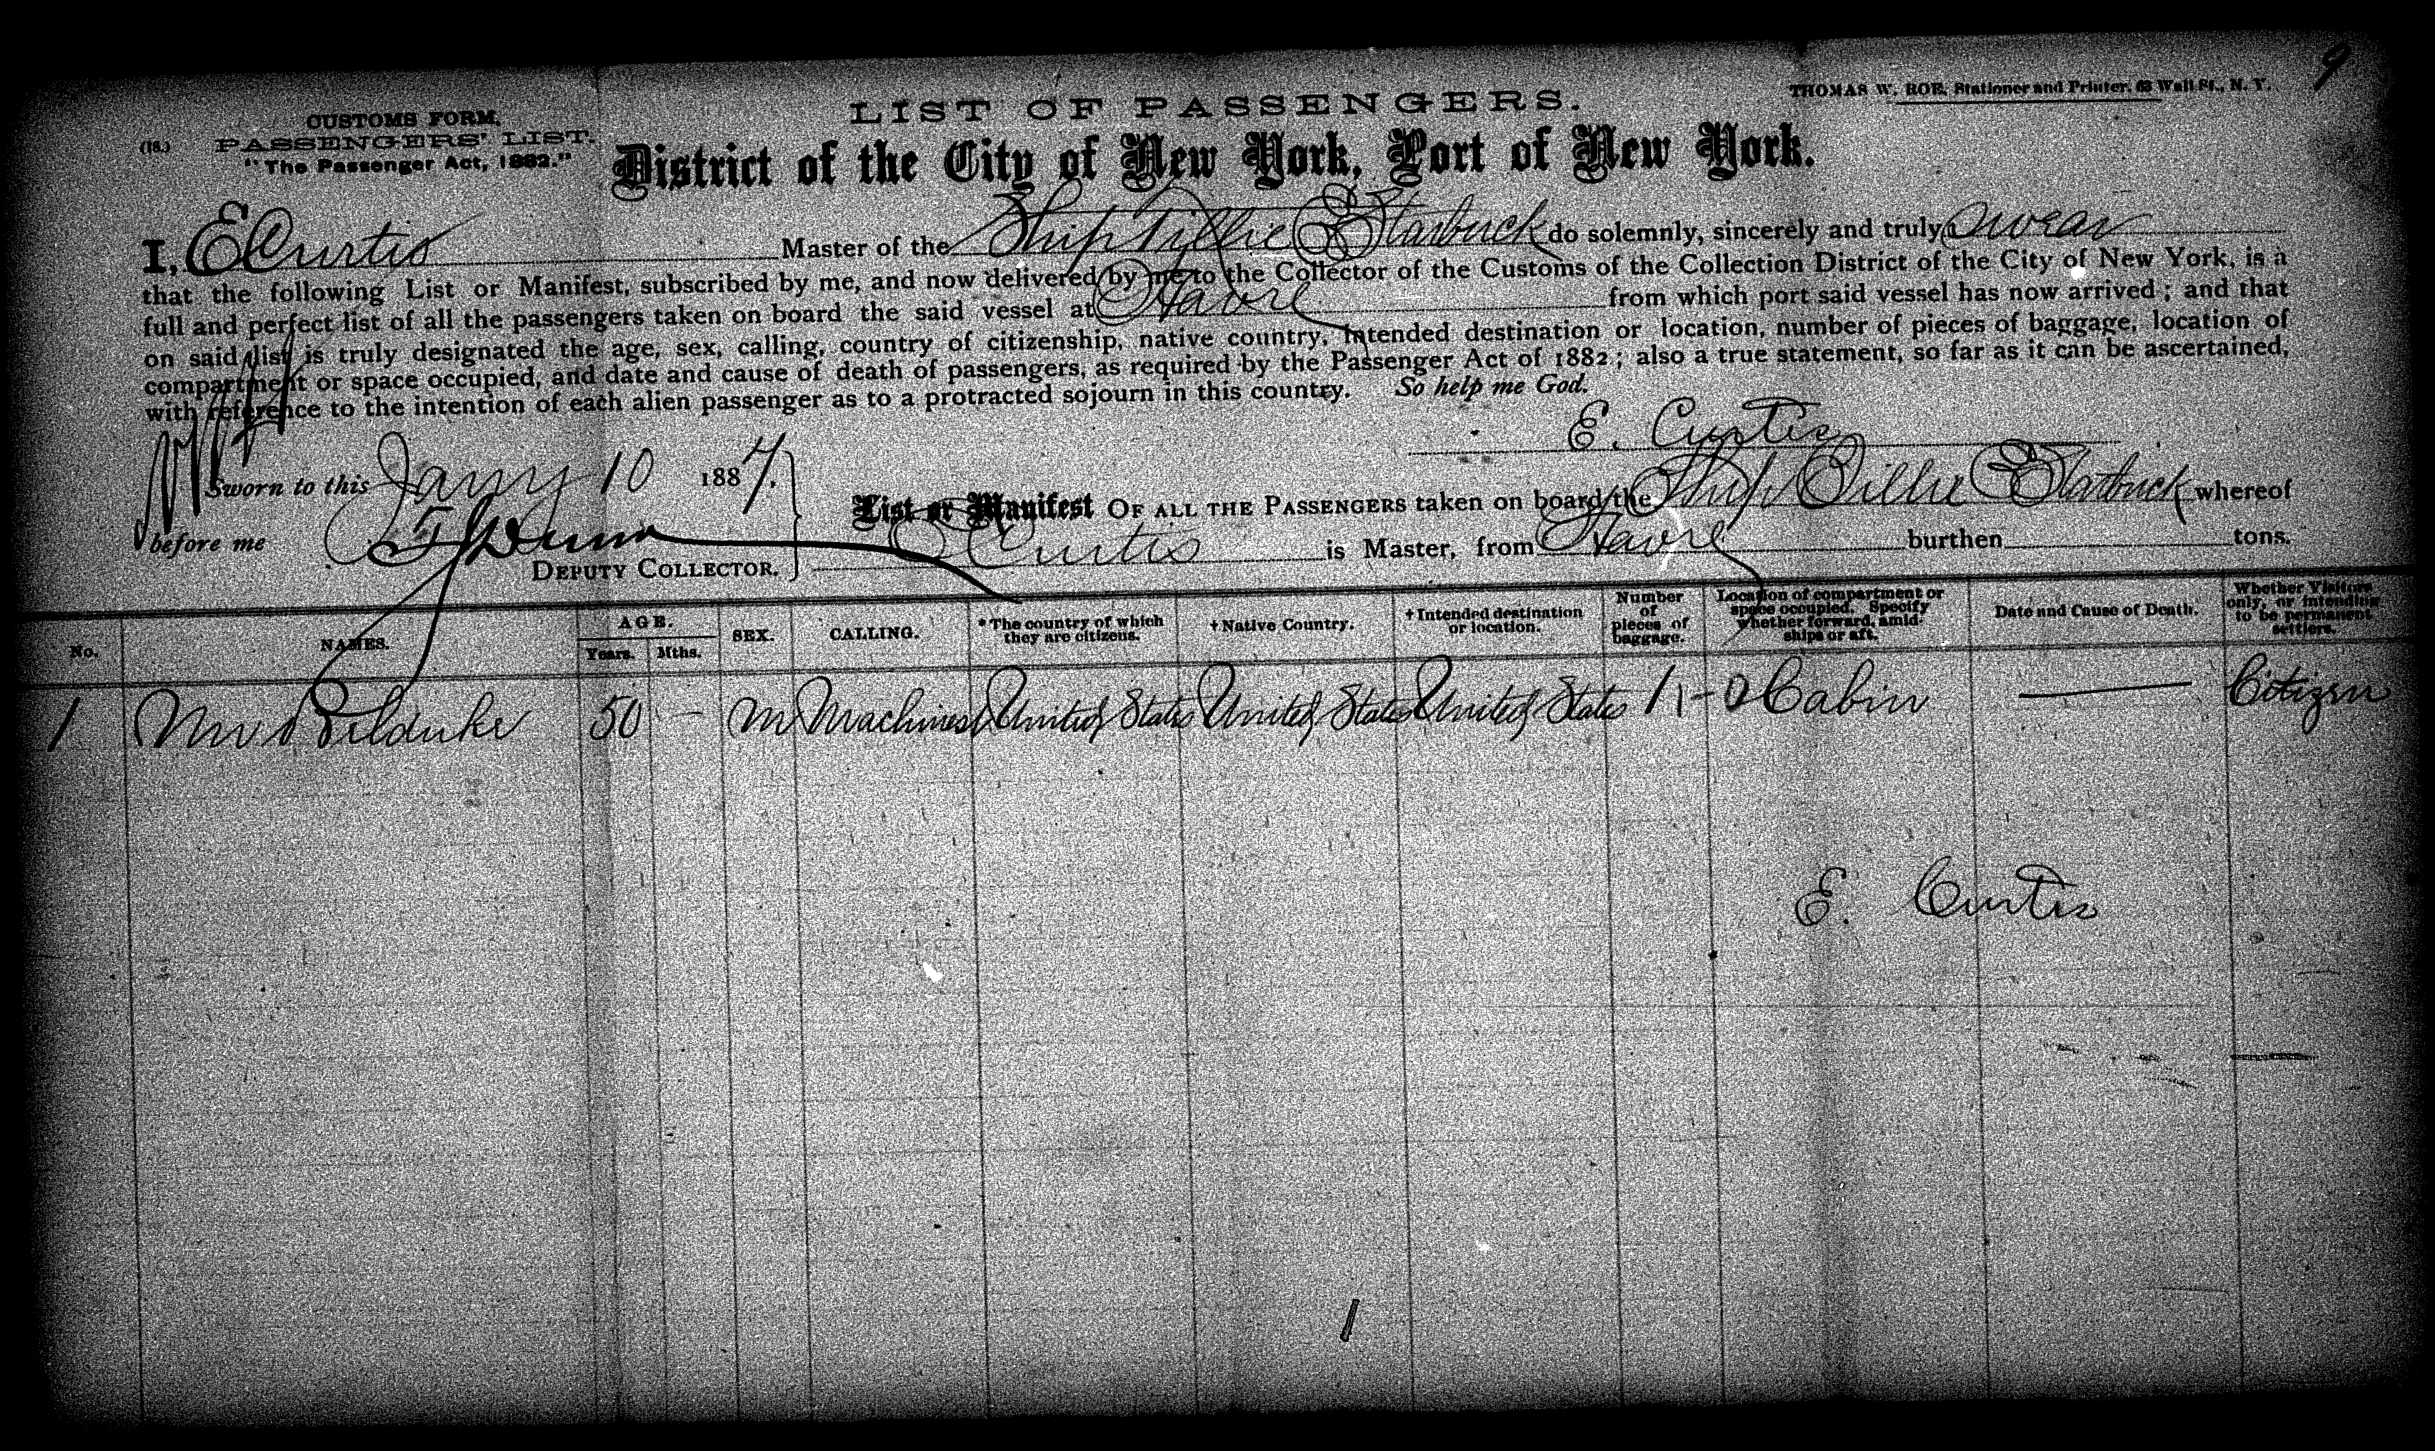 9
THOMAS W. ROE, Stationer and Printer, 63 Wall St., N. Y.
LIST OF PASSENGERS.
CUSTOMS FORM.
(18.) PASSENGERS' LIST.
"The Passenger Act, 1882."
District of the City of New York, Port of New York.
I, E Curtis Master of the Ship Tillie E Starbuck do solemnly, sincerely and truly swear
that the following List or Manifest, subscribed by me, and now delivered by me to the Collector of the Customs of the Collection District of the City of New York, is a
full and perfect list of all the passengers taken on board the said vessel at Havre from which port said vessel has now arrived; and that
on said list is truly designated the age, sex, calling, country of citizenship, native country, intended destination or location, number of pieces of baggage, location of
compartment or space occupied, and date and cause of death of passengers, as required by the Passenger Act of 1882; also a true statement, so far as it can be ascertained,
with reference to the intention of each alien passenger as to a protracted sojourn in this country. So help me God.
E. Curtis
Sworn to this Jany 10 1887.
List or Manifest OF ALL THE PASSENGERS taken on board the Ship Tillie E Starbuck whereof
before me
E Curtis is Master, from Havre burthen tons.
DEPUTY COLLECTOR.
No. NAMES. AGE. Years. Mths. SEX. CALLING. *The country of which they are citizens. †Native Country. †Intended destination or location. Number of pieces of baggage. Location of compartment or space occupied. Specify whether forward, amidships or aft. Date and Cause of Death. Whether Visitors only, or intending to be permanent settlers.
1 50 — M Machinist United States United States United States 1 Cabin — Citizen
E. Curtis
1